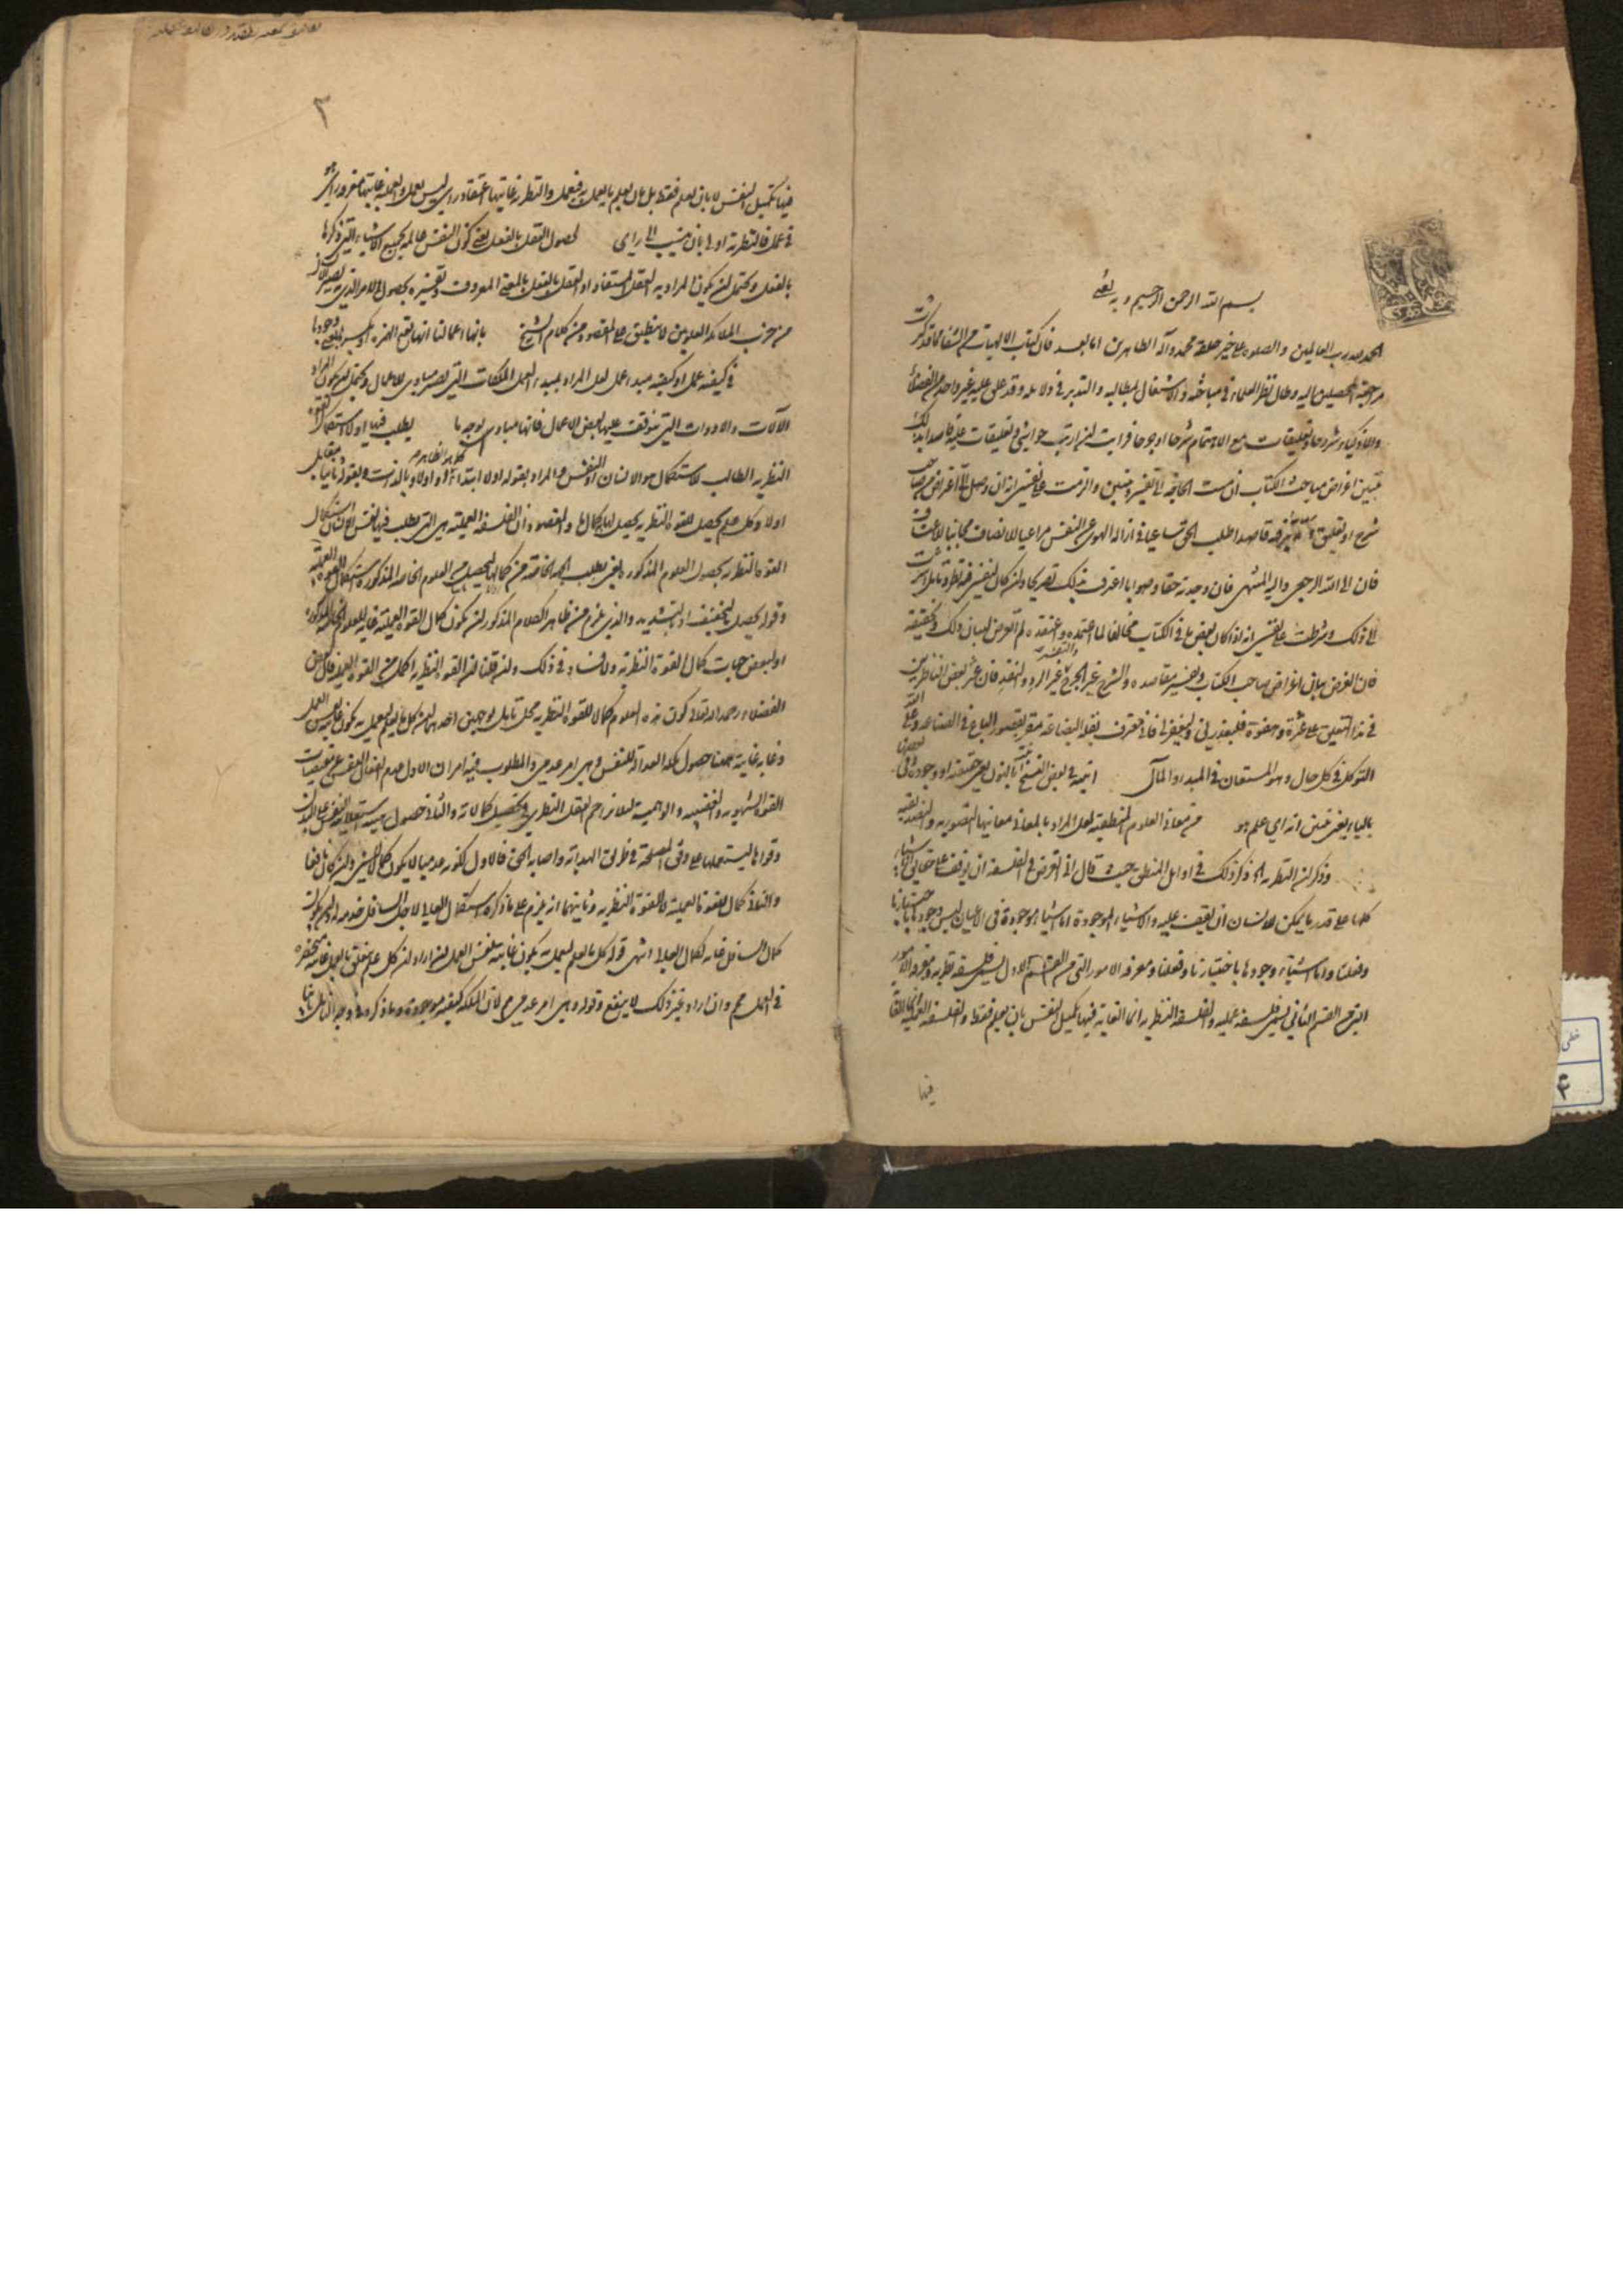 بسم الله الرحمن الرحيم وبه ثقتي
الحمد لله رب العالمين والصلوة على خير خلقه محمد وآله الطاهرين اما بعد فان كتاب الالهيات من الشفا مما قد كثرت
مراجعة المحصلين اليه وطال نظر العلماء في مباحثه والاشتغال بمطالبه والتدبر في دلائله وقد علق عليه غير واحد من الفضلاء
والاذكياء شروحا وتعليقات مع الاهتمام شرحا او جرحا فرايت ان ارتب حواشي وتعليقات عليه قاصدا بذلك
تبيين اغراض مباحث الكتاب ان مست الحاجة الى تفسير وتبيين والزمت على نفسي انه ان وصل الى اعتراض من صاحب
شرح او تعليق فيه قاصدا طلب الحق ساعيا في ازالة الهوى عن النفس مراعيا للانصاف مجانبا للاعتساف
فان الى الله الرجعى واليه المنتهى فان وجدته حقا وصوابا اعترف بذلك تصريحا وان كان لنفسي فيه نظر وتأمل اشرت
الى ذلك وشرطت على نفسي انه اذا كان بعض ما في الكتاب مخالفا لما اعتمده واعتقده لم اتعرض لبيان ذلك وتحقيقه
فان الغرض بيان اغراض صاحب الكتاب وتفسير مقاصده والشرح غير الجرح والتفسير غير الرد والنقد فان عثر بعض الناظرين
في هذا التعليق على عثرة وهفوة فليعذرني وليغفر لي فاني معترف بقلة البضاعة مقر بقصور الباع في الصناعة وعلى الله
التوكل في كل حال وهو المستعان في المبدا والمآل انيته في بعض النسخ بالنون يعني حقيقته او وجوده وفي بعضها
بالياء يعني تبين انه اي علم هو من معاني العلوم المنطقية لعل المراد بالمعاني معانيها التصورية والتصديقية
وذكر ان النظرية الخ ذكر ذلك في اوايل المنطق حيث قال ان الغرض في الفلسفة ان يوقف على حقايق الاشياء
كلها على قدر ما يمكن للانسان ان يقف عليه والاشياء الموجودة اما اشياء موجودة في الاعيان ليس وجودها باختيارنا
وفعلنا واما اشياء وجودها باختيارنا وفعلنا ومعرفة الامور التي من القسم الاول تسمى فلسفة نظرية ومعرفة الامور
التي من القسم الثاني تسمى فلسفة عملية والفلسفة النظرية انما الغاية فيها تكميل النفس بان يعلم فقط والفلسفة العملية انما الغاية
فيها
٢
فيها تكميل النفس لا بان يعلم فقط بل بان يعلم ما يعمل به فيعمل والنظرية غايتها اعتقاد راي ليس بعمل والعملية غايتها معرفة راي هو
في عمل فالنظرية اولى بان ينسب الى راي لحصول العقل بالفعل يعني كون النفس عالمة بجميع الاشياء التي ذكرها
بالفعل ويحتمل ان يكون المراد به العقل المستفاد او العقل بالفعل بالمعنى المعروف
لا ينطبق على المقصود من كلام الشيخ بانها اعمالنا انها بفتح الهمزة او بكسر
في كيفية عمل او كيفية مبدء عمل لعل المراد بمبدء العمل الملكات التي تصير مبادي للاعمال ويحتمل ان يكون المراد
الآلات والادوات التي يتوقف عليها بعض الاعمال فانها مباد بوجه ما يطلب فيها اولا استكمال القوة
النظرية الطالب لاستكمال هو الانسان او النفس والمراد بقوله اولا ابتداء او اولا وبالذات وبقوله ثانيا ما يقابل
اولا وكل علم يحصل للقوة النظرية يحصل لها به كمال ما والمقصود ان الفلسفة العملية هي التي يطلب فيها لنفس الانسان استكمال
القوة النظرية بحصول العلوم المذكورة
وقوله يحصل بالتخفيف او بالتشديد والذي يلزم من ظاهر الكلام المذكور ان يكون كمال القوة العملية غاية للعلوم
او لبعض جهات كمال القوة النظرية ولا فساد في ذلك وان قلنا ان القوة النظرية اكمل من القوة العملية فقال بعض
الفضلاء رحمه الله تعالى كون هذه العلوم كمالا للقوة النظرية محل تامل بوجهين احدهما ان كل ما يعلم ليعمل به يكون غايته نفس العمل
وغاية غايته ههنا حصول ملكة العدالة للنفس وهي امر عدمي والمطلوب فيه امران الاول عدم انفعال النفس عن مقتضيات
القوة الشهوية والغضبية والوهمية لئلا تزاحم العقل النظري في تحصيل كمالاته والثاني حصول هيئة استعلائية للنفس على البدن
وقواها ليستعملها على وفق المصلحة في طريق الهداية واصابة الحق فالاول لكونه عدميا لا يكون كمالا لشيء وان كان نافعا
والثاني كمال للقوة العملية لا للقوة النظرية وثانيهما انه يلزم على ما ذكره استكمال العالي لاجل السافل
كمال السافل غاية لكمال العالي انتهى قوله كل ما يعلم ليعمل به يكون غايته نفس العمل ان اراد ان كل علم يتعلق بالعمل غايته منحصرة
في العمل مم وان اراد غير ذلك لا ينفع وقوله وهي امر عدمي مم لان الملكة كيفية موجودة